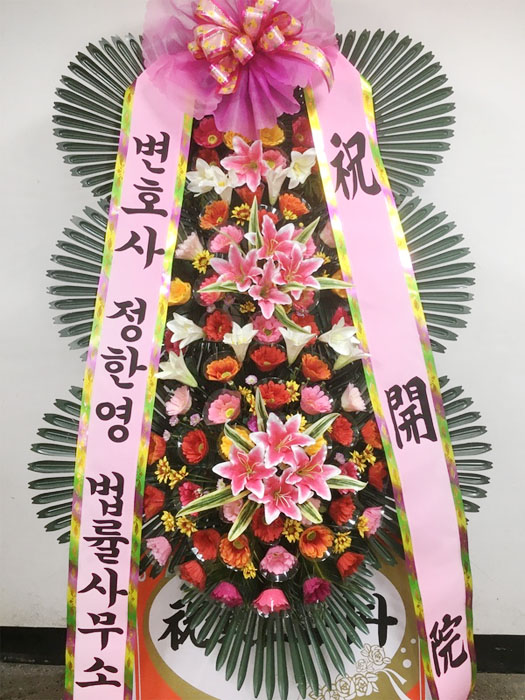 변호사 정한영 법률사무소
祝開院
祝